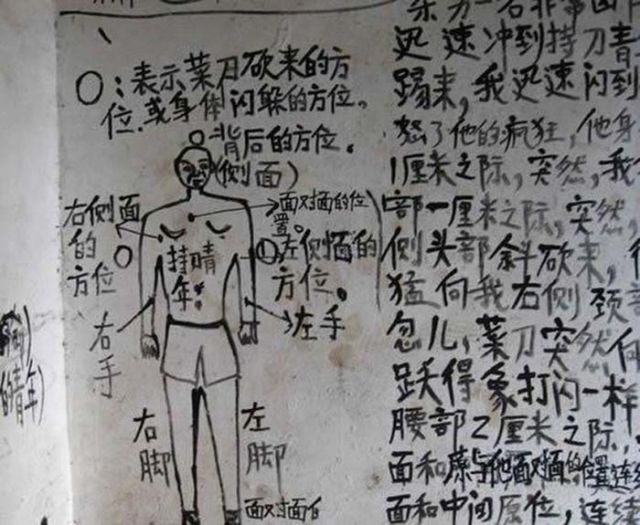 ○：表示菜刀砍来的方
位.或身体闪躲的方位。
背后的方位.
(侧面)
面对面的位
置。
右侧面
的
方位
左侧面的
方位。
持
年
右手
左手
右脚
左脚
面对面
的青年)
迅速冲到持刀青
踢来,我迅速闪到
怒了他的疯狂,他身
1厘米之际,突然,我
部一厘米之际,突然,
侧头部斜砍来,
猛向我右侧颈
忽儿,菜刀突然向
跃得象打闪一样
腰部2厘米之际,
面和 与他面对面的位置连
面和中间原位,连续